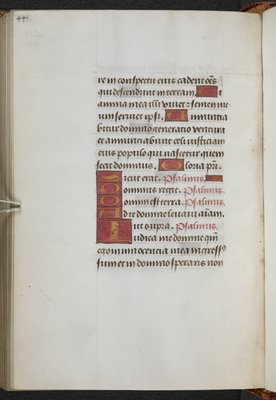 re in conspectu eius cadent oēs
qui descendunt in terram. Et
anima mea illi vivet: & semen me
um serviet ipsi. Annuntia
bitur domino generatio ventura
et annuntiabunt celi iustitiam
eius populo qui nascetur quem
fecit dominus. Gloria pri.
Sicut erat. Psalmus.
Dominus regit. Psalmus.
Domini est terra. Psalmus.
Ad te domine levavi aīam.
ut supra. Psalmus.
Iudica me domine qm̄
ego in innocentia mea ingress⁹
sum et in domino sperans non